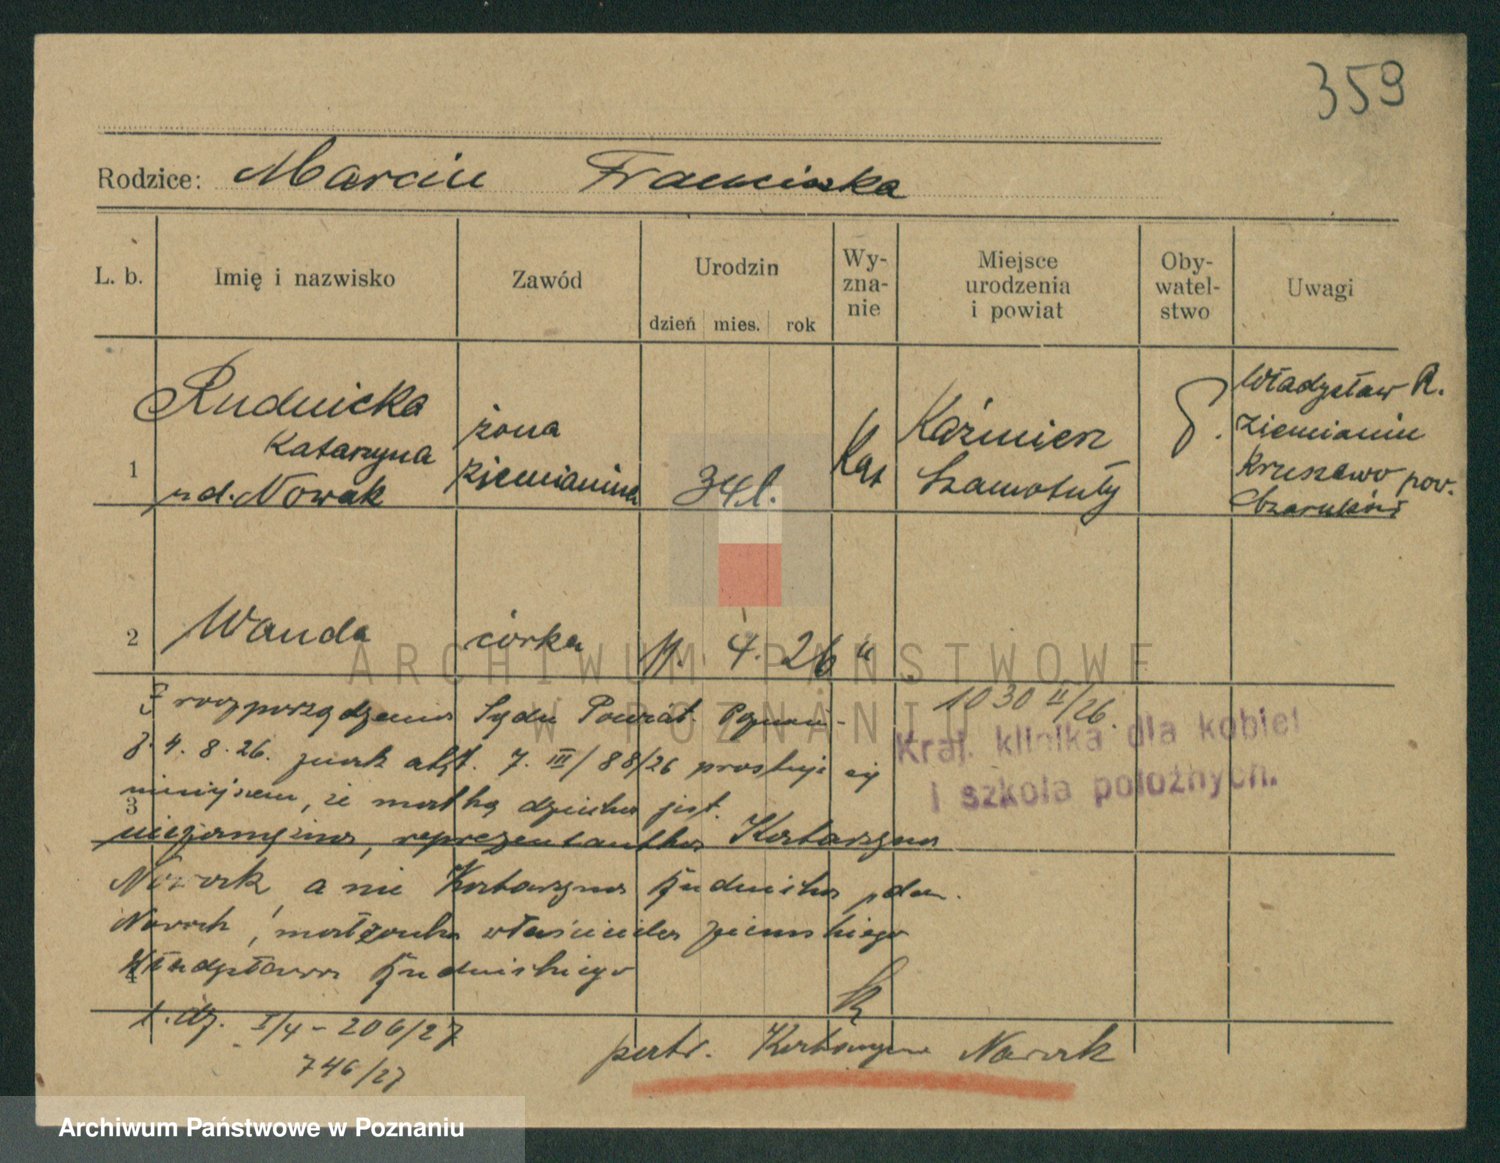 359
Rodzice: Marcin Franciszka
L. b. Imię i nazwisko Zawód Urodzin Wy-zna-nie Miejsce urodzenia i powiat Oby-watel-stwo Uwagi
dzień mies. rok
1
Rudnicka
Katarzyna
rd. Nowak
żona
ziemianina
34 l.
Kat
Kaźmierz
Szamotuły
P.
Władysław R.
ziemianin
Kruszewo pow.
Czarnków
2 Wanda córka 11. 4. 26 "
1030 II/26.
Kraj. klinika dla kobiet
i szkoła położnych.
Z rozporządzenia Sądu Powiat. Poznań-
z. 4. 8. 26. znak akt. 7. III/88/26 prostuje się
niniejszem, że matką dziecka jest
3
niezamężna, reprezentantka Katarzyna
Nowak, a nie Katarzyna Rudnicka, dom.
Nowak, małżonka właściciela ziemskiego
4
Władysława Rudnickiego
l. dz. I/4 - 206/27
746/27
patr. Katarzyna Nowak
ARCHIWUM PAŃSTWOWE
W POZNANIU
Archiwum Państwowe w Poznaniu